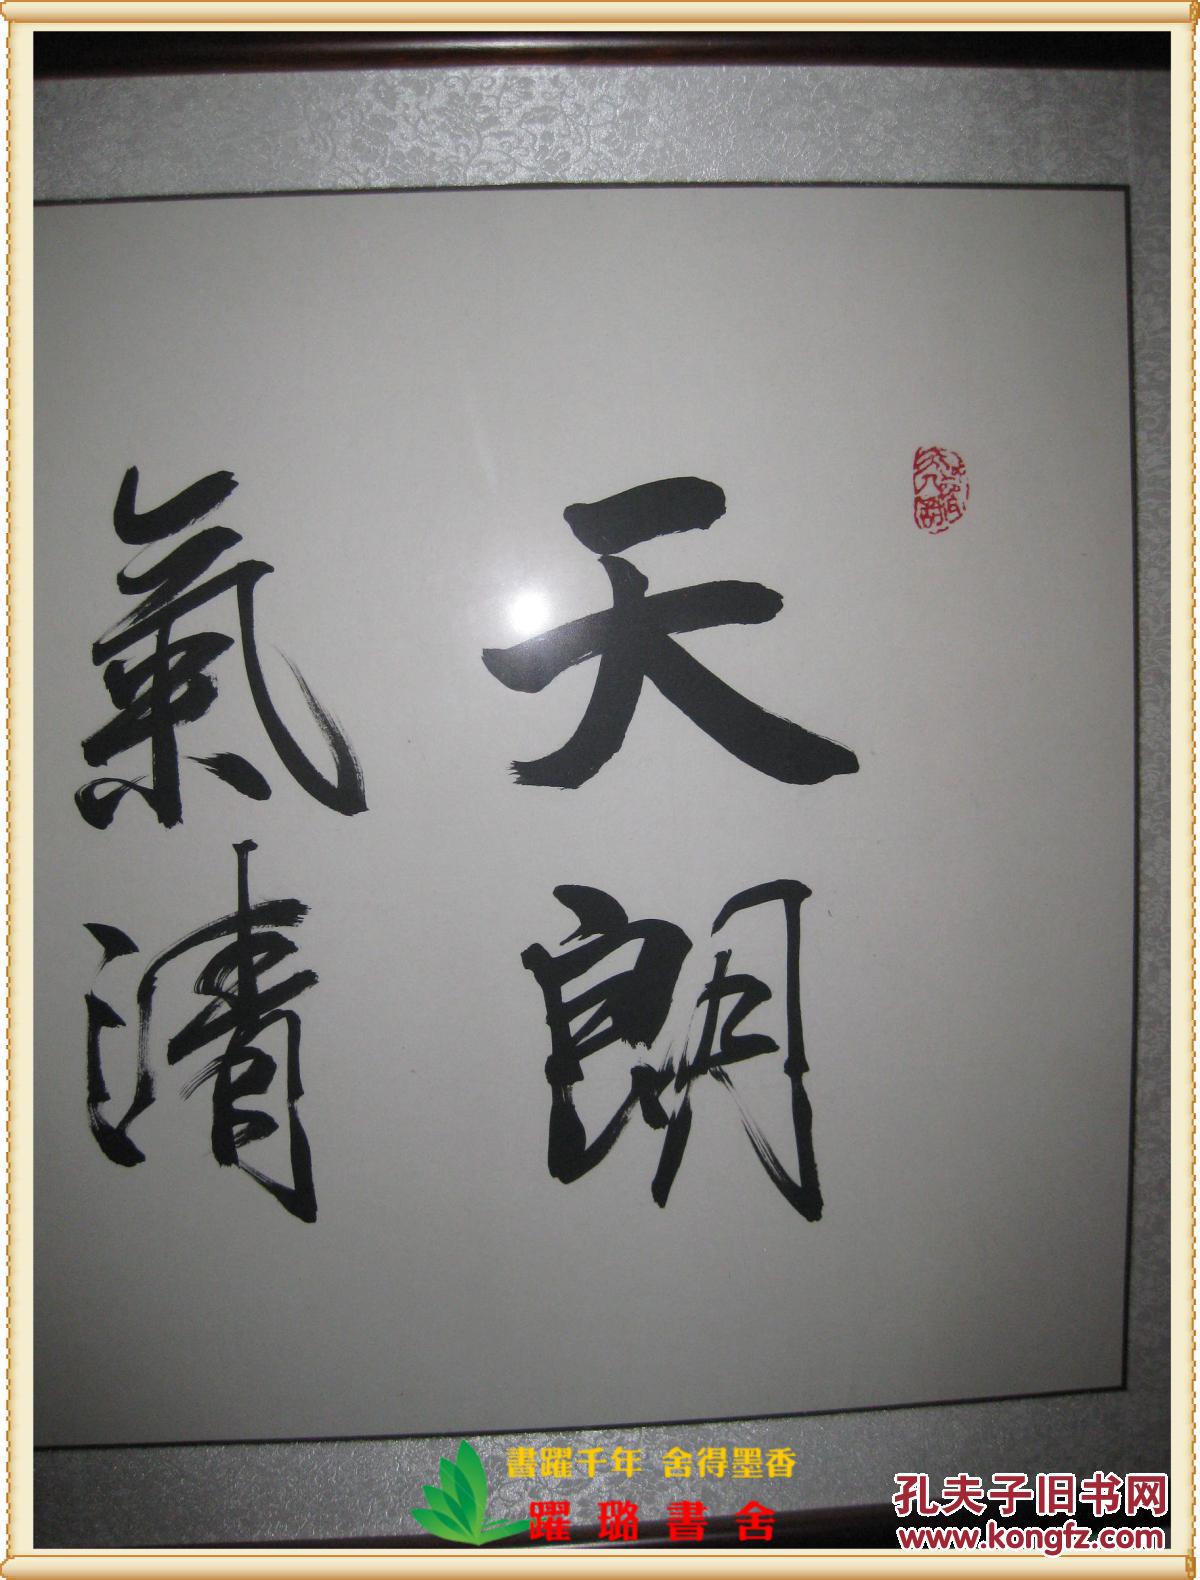 天朗
氣清
書躍千年 舍得墨香
躍璐書舍
孔夫子旧书网
www.kongfz.com